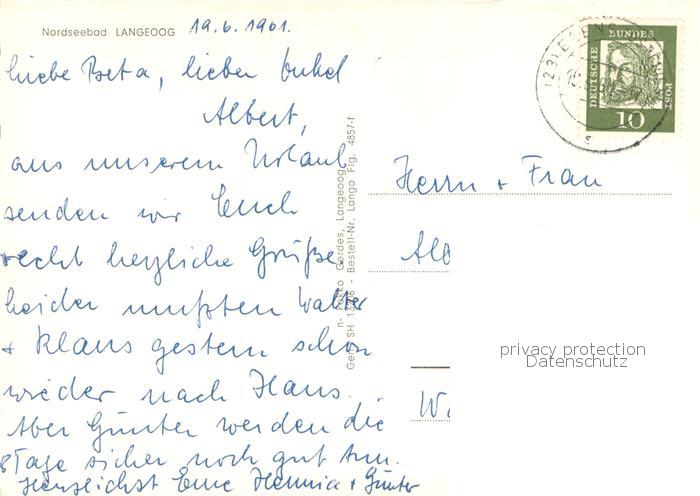 Nordseebad LANGEOOG 19.6.1961.
liebe Beta, lieber Onkel
Albert,
aus unserem Urlaub
senden wir Euch
recht herzliche Grüße.
leider mußten Walter
+ Klaus gestern schon
wieder nach Haus.
Aber Günter werden die
8 Tage sicher noch gut tun.
Herzlichst Eure Hennica + Günter
Gerdes, Langeoog
Gen. SH - Bestell-Nr. Lango Fig. 4857-f
DEUTSCHE BUNDES POST
10
Herrn + Frau
Alb
W
privacy protection
Datenschutz